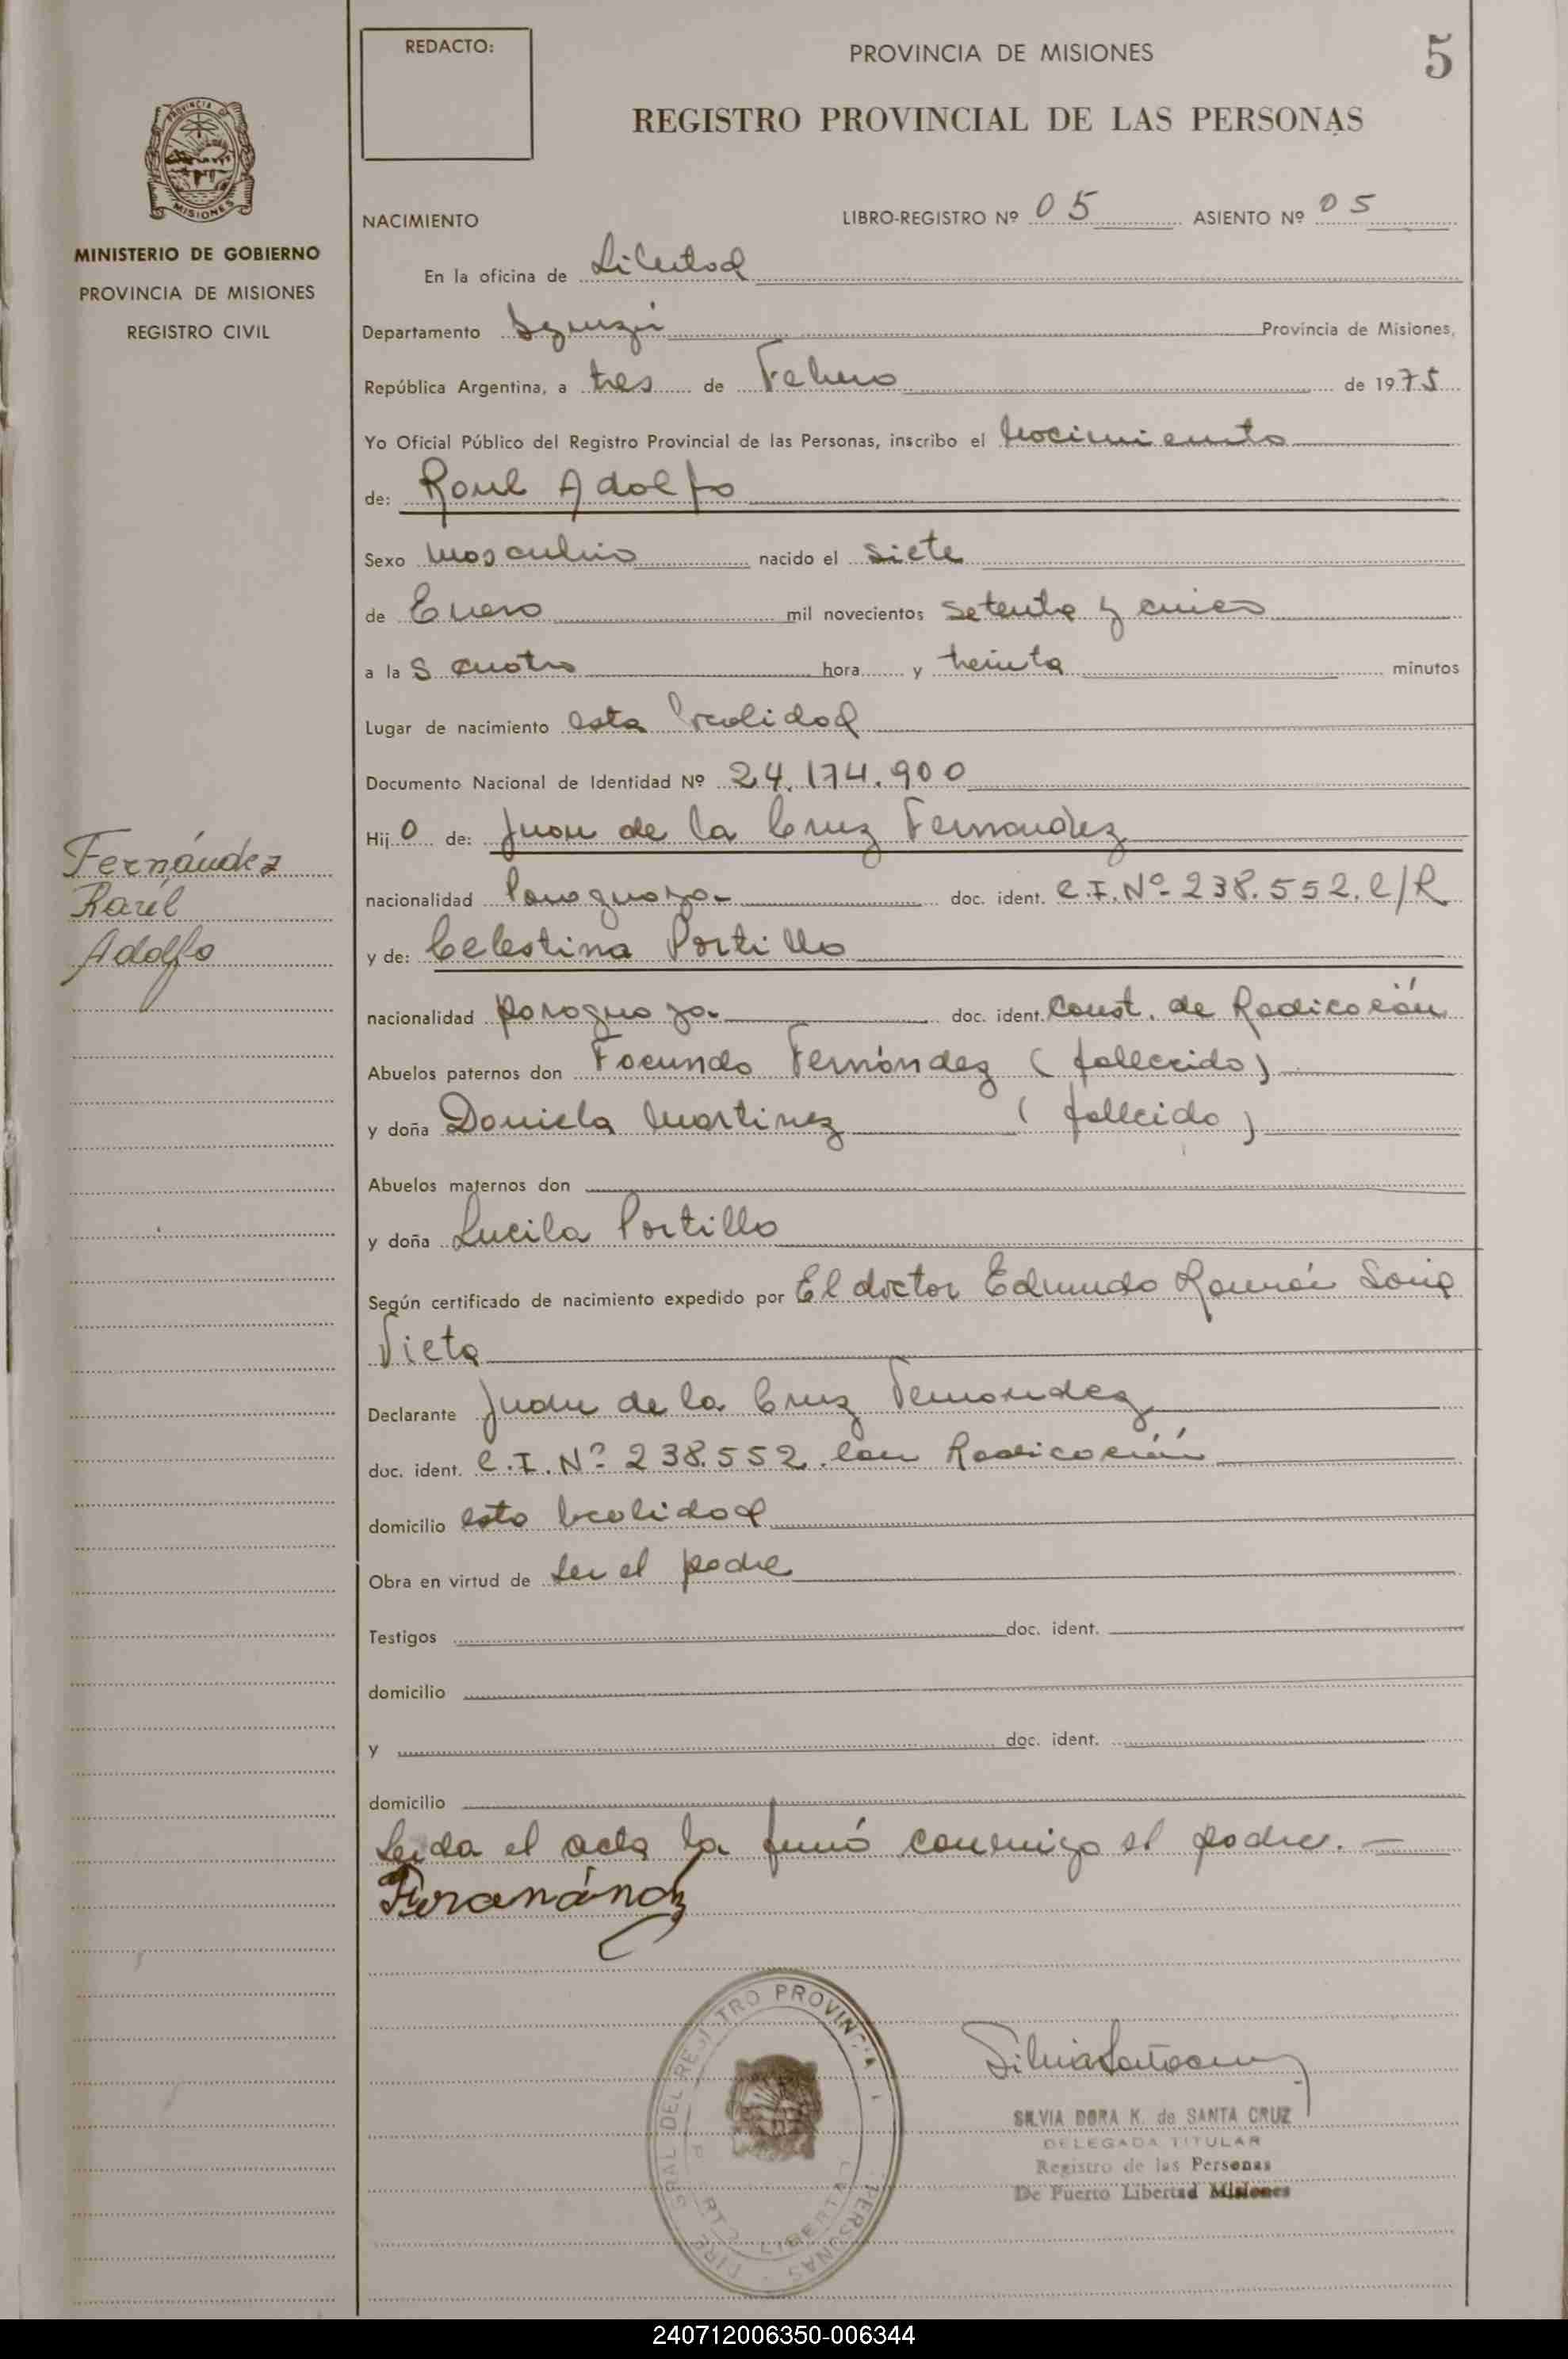 REDACTO:
PROVINCIA DE MISIONES
5
REGISTRO PROVINCIAL DE LAS PERSONAS
PROVINCIA DE
MISIONES
MINISTERIO DE GOBIERNO
PROVINCIA DE MISIONES
REGISTRO CIVIL
NACIMIENTO
LIBRO-REGISTRO Nº 05 ASIENTO Nº 05
En la oficina de Libertad
Departamento Iguazú Provincia de Misiones,
República Argentina, a tres de Febrero de 1975
Yo Oficial Público del Registro Provincial de las Personas, inscribo el Nacimiento
de: Raul Adolfo
Sexo Masculino nacido el siete
de Enero mil novecientos setenta y cinco
a las cuatro hora y treinta minutos
Lugar de nacimiento esta localidad
Documento Nacional de Identidad Nº 24.174.900
Hijo de: Juan de la Cruz Fernandez
nacionalidad Paraguaya- doc. ident. C.I.Nº- 238.552.C/R
y de: Celestina Portillo
nacionalidad paraguaya- doc. ident. Const. de Radicación
Abuelos paternos don Facundo Fernández (fallecido)
y doña Daniela Martinez (fallecido)
Abuelos maternos don
y doña Lucila Portillo
Según certificado de nacimiento expedido por El doctor Edmundo Ramón Soria
Vieta
Declarante Juan de la Cruz Fernandez
doc. ident. C.I.Nº 238.552. Con Radicación
domicilio esta localidad
Obra en virtud de ser el padre
Testigos doc. ident.
domicilio
y doc. ident.
domicilio
Leida el acta la firmó conmigo el padre. —
Fernández
Raúl
Adolfo
DEL REGISTRO PROVINCIAL
PERSONAS
SILVIA DORA K. de SANTA CRUZ
DELEGADA TITULAR
Registro de las Personas
De Puerto Libertad Misiones
240712006350-006344